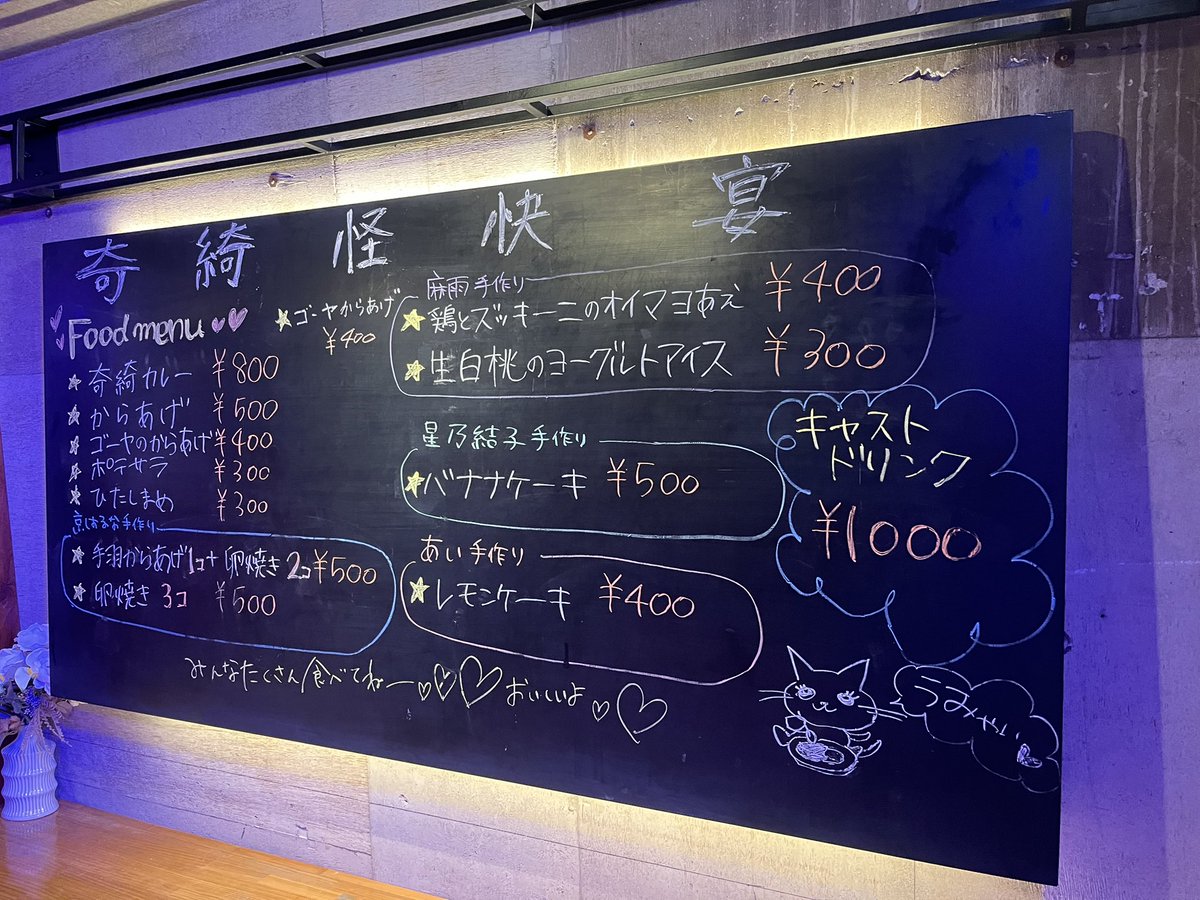 奇綺怪快宴
Food menu
奇綺カレー ¥800
からあげ ¥500
ゴーヤのからあげ ¥400
ポテサラ ¥300
ひたしまめ ¥300
手作り
手羽からあげ1コ+卵焼き2コ ¥500
卵焼き 3コ ¥500
ゴーヤからあげ
¥400
麻雨手作り
鶏とズッキーニのオイマヨあえ ¥400
生白桃のヨーグルトアイス ¥300
星乃結子手作り
バナナケーキ ¥500
あい手作り
レモンケーキ ¥400
キャスト
ドリンク
¥1000
みんなたくさん食べてねー おいしいよ